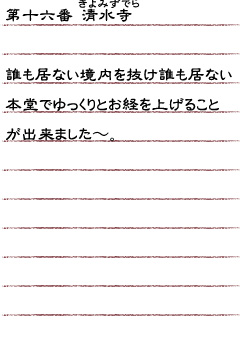 きよみずでら
第十六番 清水寺
誰も居ない境内を抜け誰も居ない
本堂でゆっくりとお経を上げること
が出来ました～。